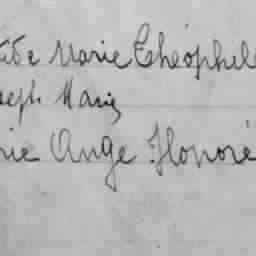 Marie Théophile
seph Marie
rie Ange Honoré